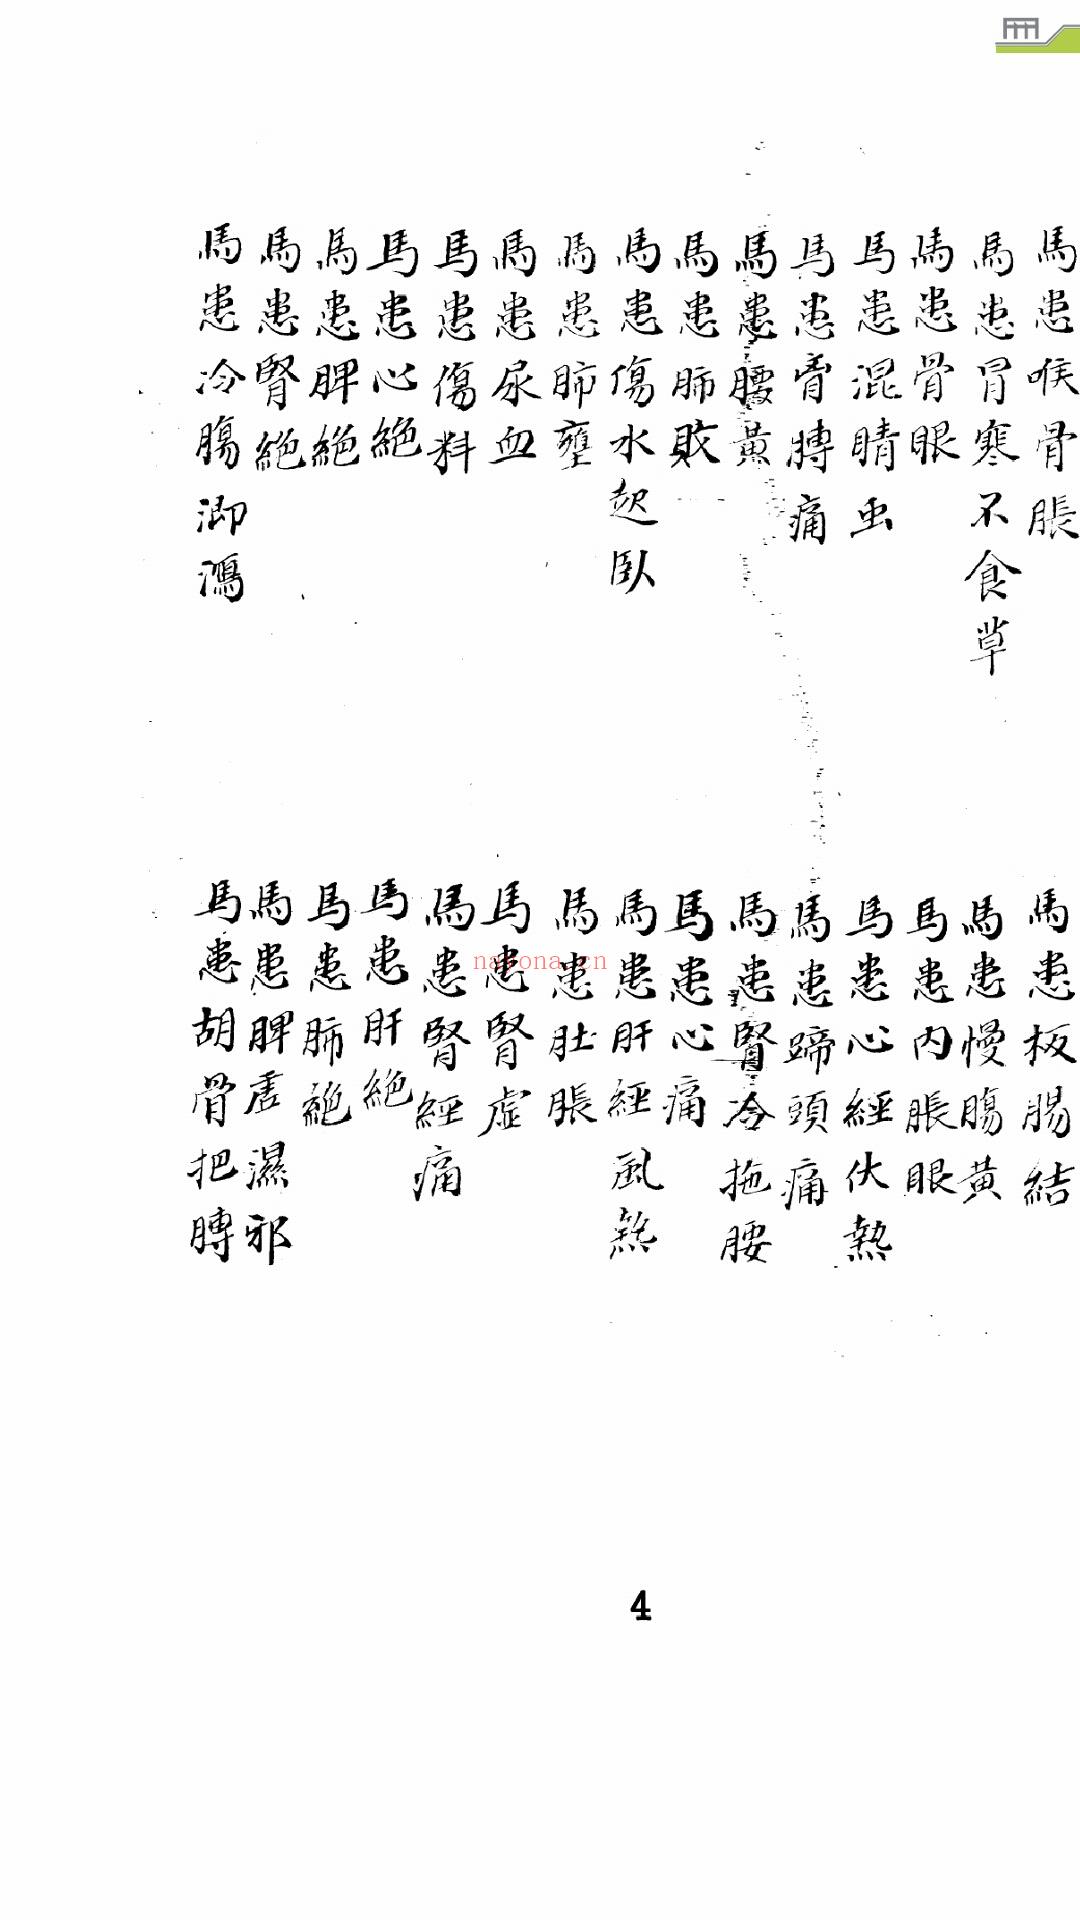 馬患喉骨脹
馬患冒寒不食草
馬患骨眼
馬患混睛虫
馬患膏膊痛
馬患腰黃
馬患肺敗
馬患傷水起臥
馬患肺壅
馬患尿血
馬患傷料
馬患心絕
馬患脾絕
馬患腎絕
馬患冷腸
馬患板腸結
馬患慢腸黃
馬患內脹眼
馬患心經伏熱
馬患蹄頭痛
馬患腎冷拖腰
馬患心痛
馬患肝經風熱
馬患肚脹
馬患腎虛
馬患腎經痛
馬患肝絕
馬患肺絕
馬患脾虛濕邪
馬患胡骨把膊
nayona.cn
4